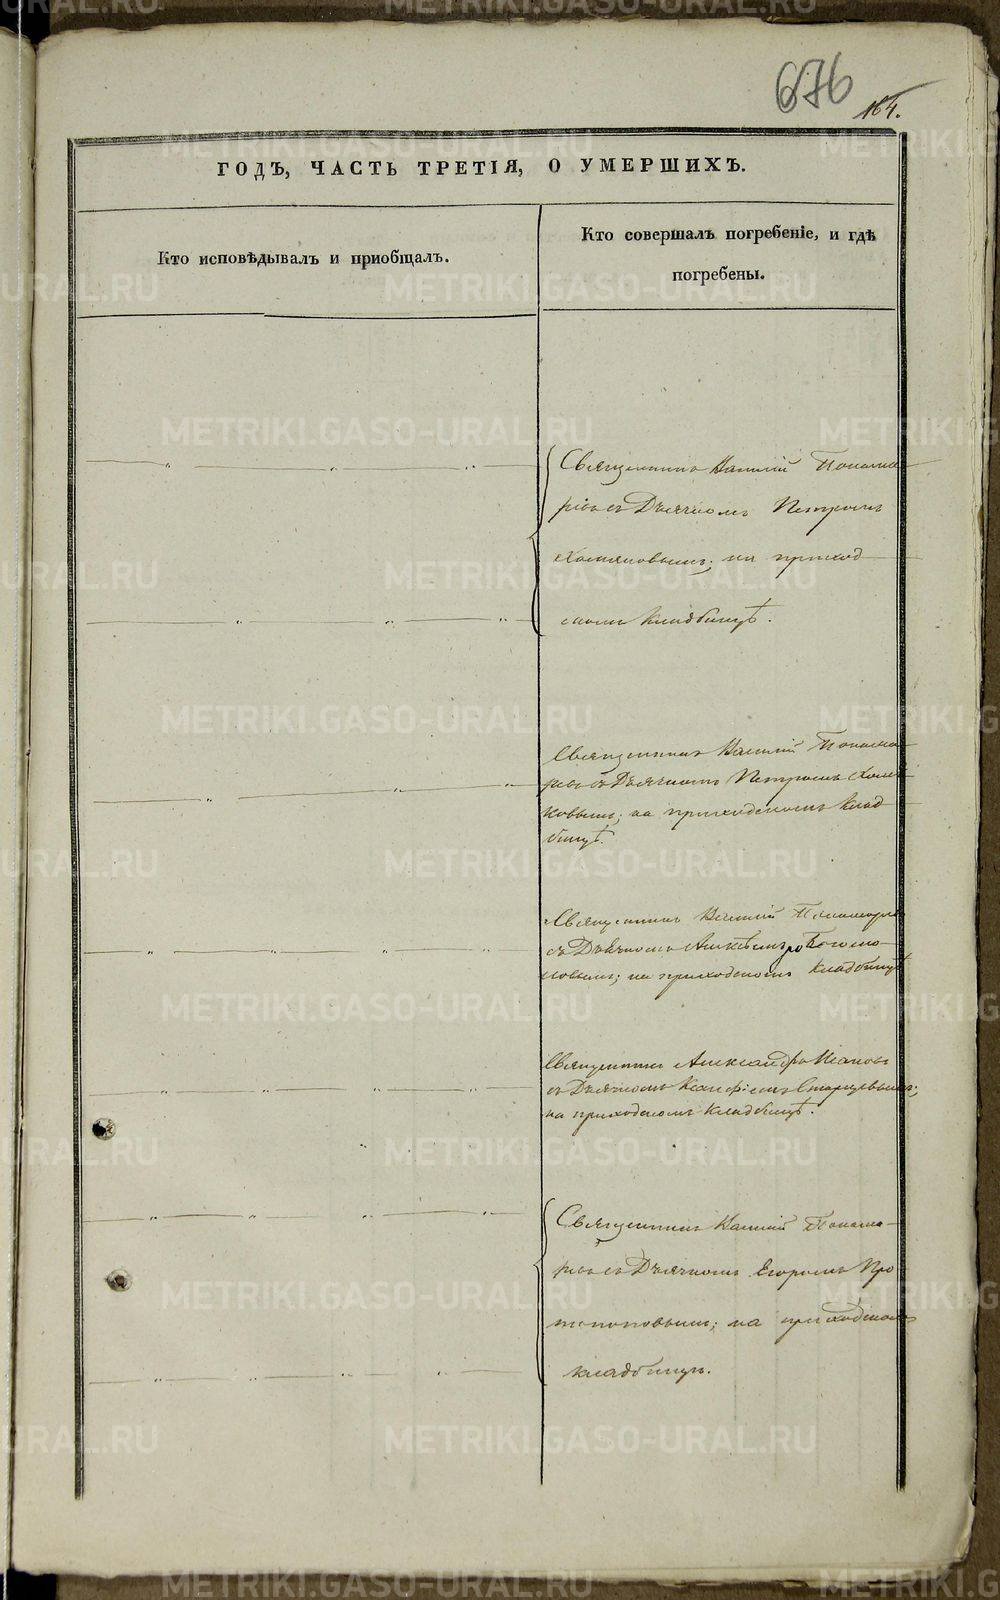 676
164.
ГОДЪ, ЧАСТЬ ТРЕТІЯ, О УМЕРШИХЪ.
Кто исповѣдывалъ и приобщалъ.
Кто совершалъ погребеніе, и гдѣ
погребены.
Священникъ Василій Понома-
ревъ съ Дьячкомъ Петромъ
Хомяковымъ; на приход-
скомъ кладбищѣ.
Священникъ Василій Понома-
ревъ съ Дьячкомъ Петромъ Хомя-
ковымъ; на приходскомъ клад-
бищѣ.
Священникъ Василій Пономаревъ
съ Дьячкомъ
на приходскомъ кладбищѣ
Священникъ Александръ
съ Дьячкомъ Старцевымъ;
на приходскомъ кладбищѣ.
Священникъ Василій Понома-
ревъ съ Дьячкомъ Егоромъ Про-
топоповымъ; на приходскомъ
кладбищѣ.
METRIKI.GASO-URAL.RU